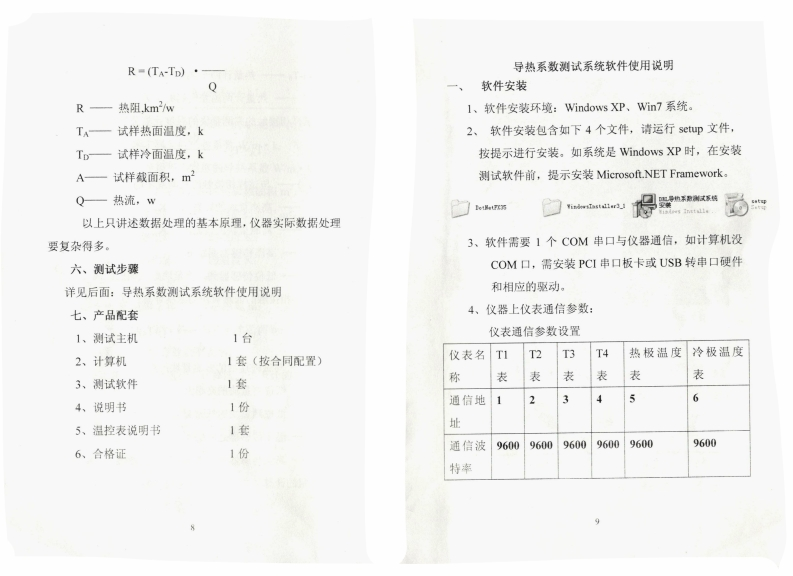 R = (TA-TD) • ——
Q
R —— 热阻,km²/w
TA—— 试样热面温度，k
TD—— 试样冷面温度，k
A—— 试样截面积，m²
Q—— 热流，w
以上只讲述数据处理的基本原理,仪器实际数据处理
要复杂得多。
六、测试步骤
详见后面：导热系数测试系统软件使用说明
七、产品配套
1、测试主机 1 台
2、计算机 1 套（按合同配置）
3、测试软件 1 套
4、说明书 1 份
5、温控表说明书 1 套
6、合格证 1 份
8
导热系数测试系统软件使用说明
一、 软件安装
1、软件安装环境：Windows XP、Win7 系统。
2、 软件安装包含如下 4 个文件，请运行 setup 文件，
按提示进行安装。如系统是 Windows XP 时，在安装
测试软件前，提示安装 Microsoft.NET Framework。
DotNetFX35 WindowsInstaller3_1 DRL导热系数测试系统 setup
安装 Setup
Windows Installe...
3、软件需要 1 个 COM 串口与仪器通信，如计算机没
COM 口，需安装 PCI 串口板卡或 USB 转串口硬件
和相应的驱动。
4、仪器上仪表通信参数：
仪表通信参数设置
仪表名 T1 T2 T3 T4 热极温度 冷极温度
称 表 表 表 表 表 表
通信地 1 2 3 4 5 6
址
通信波 9600 9600 9600 9600 9600 9600
特率
9